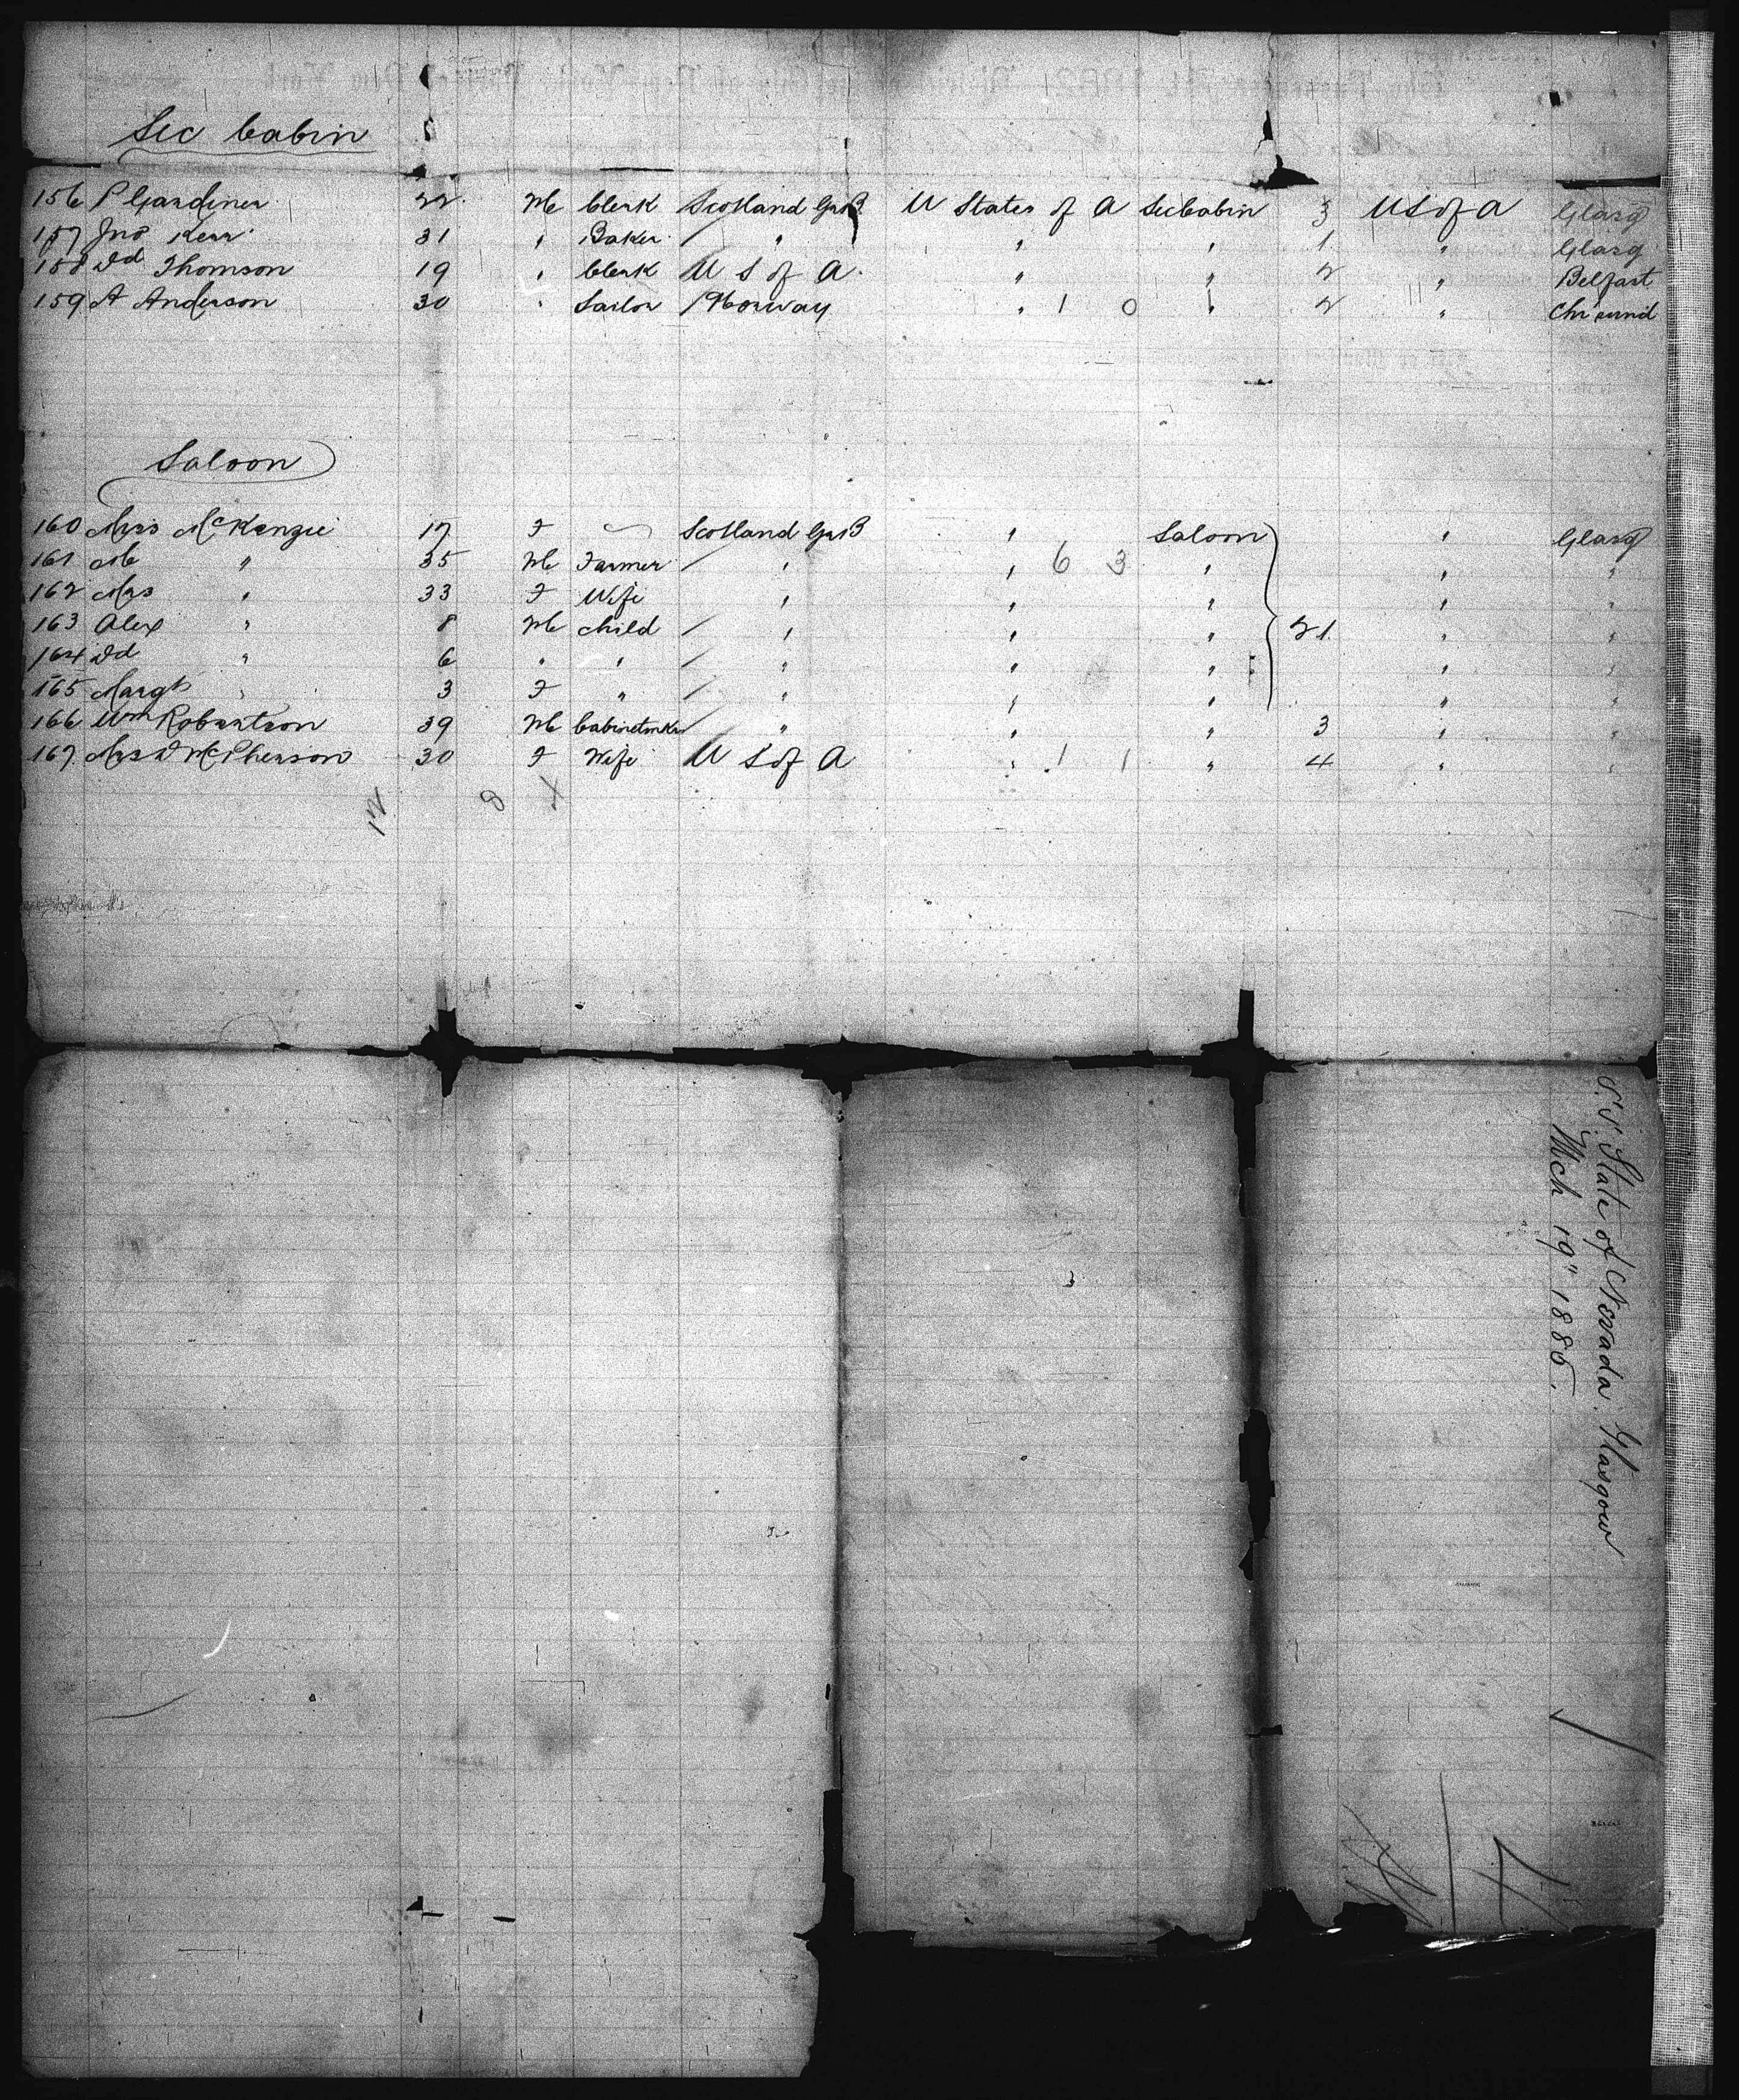 Sec Cabin
156 P Gardiner 22 M Clerk Scotland GtB U States of A Sec Cabin 3 U S of A Glasg
157 Jno Kerr 31 " Baker " " " 1 " Glasg
158 Dd Thomson 19 " Clerk U S of A " " 2 " Belfast
159 A Anderson 30 " Sailor Norway " 1 0 " 2 " Chr'sund
Saloon
160 Miss McKenzie 17 F Scotland GtB " Saloon " Glasg
161 Mr " 35 M Farmer " " 6 3 " " "
162 Mrs " 33 F Wife " " " " "
163 Alex " 8 M Child " " " 21 " "
164 Dd " 6 " " " " " " "
165 Margt " 3 F " " " " " "
166 Wm Robertson 39 M Cabinetmkr " " " 3 " "
167 Mrs D McPherson 30 F Wife U S of A " 1 1 " 4 " "
12 8 4
S.S. State of Nevada. Glasgow
Mch 19" 1885.